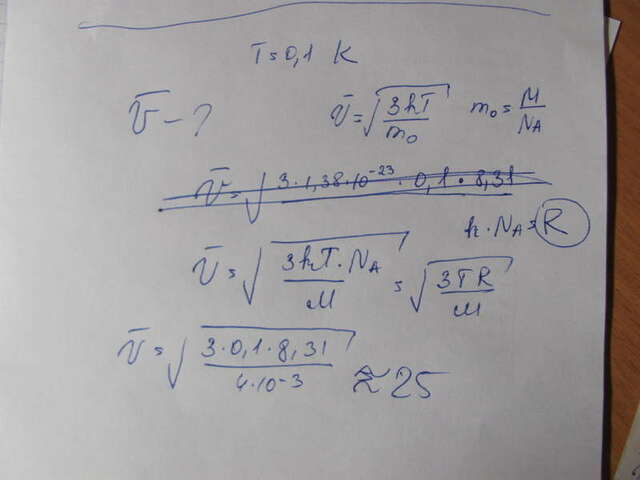 T=0,1 K
v̄ - ?  v̄=√(3kT/m₀)  m₀=M/N_A
v̄=√(3·1,38·10⁻²³·0,1·8,31
k·N_A=R
v̄=√(3kT·N_A/M)=√(3TR/M)
v̄=√(3·0,1·8,31/4·10-3) ≈25